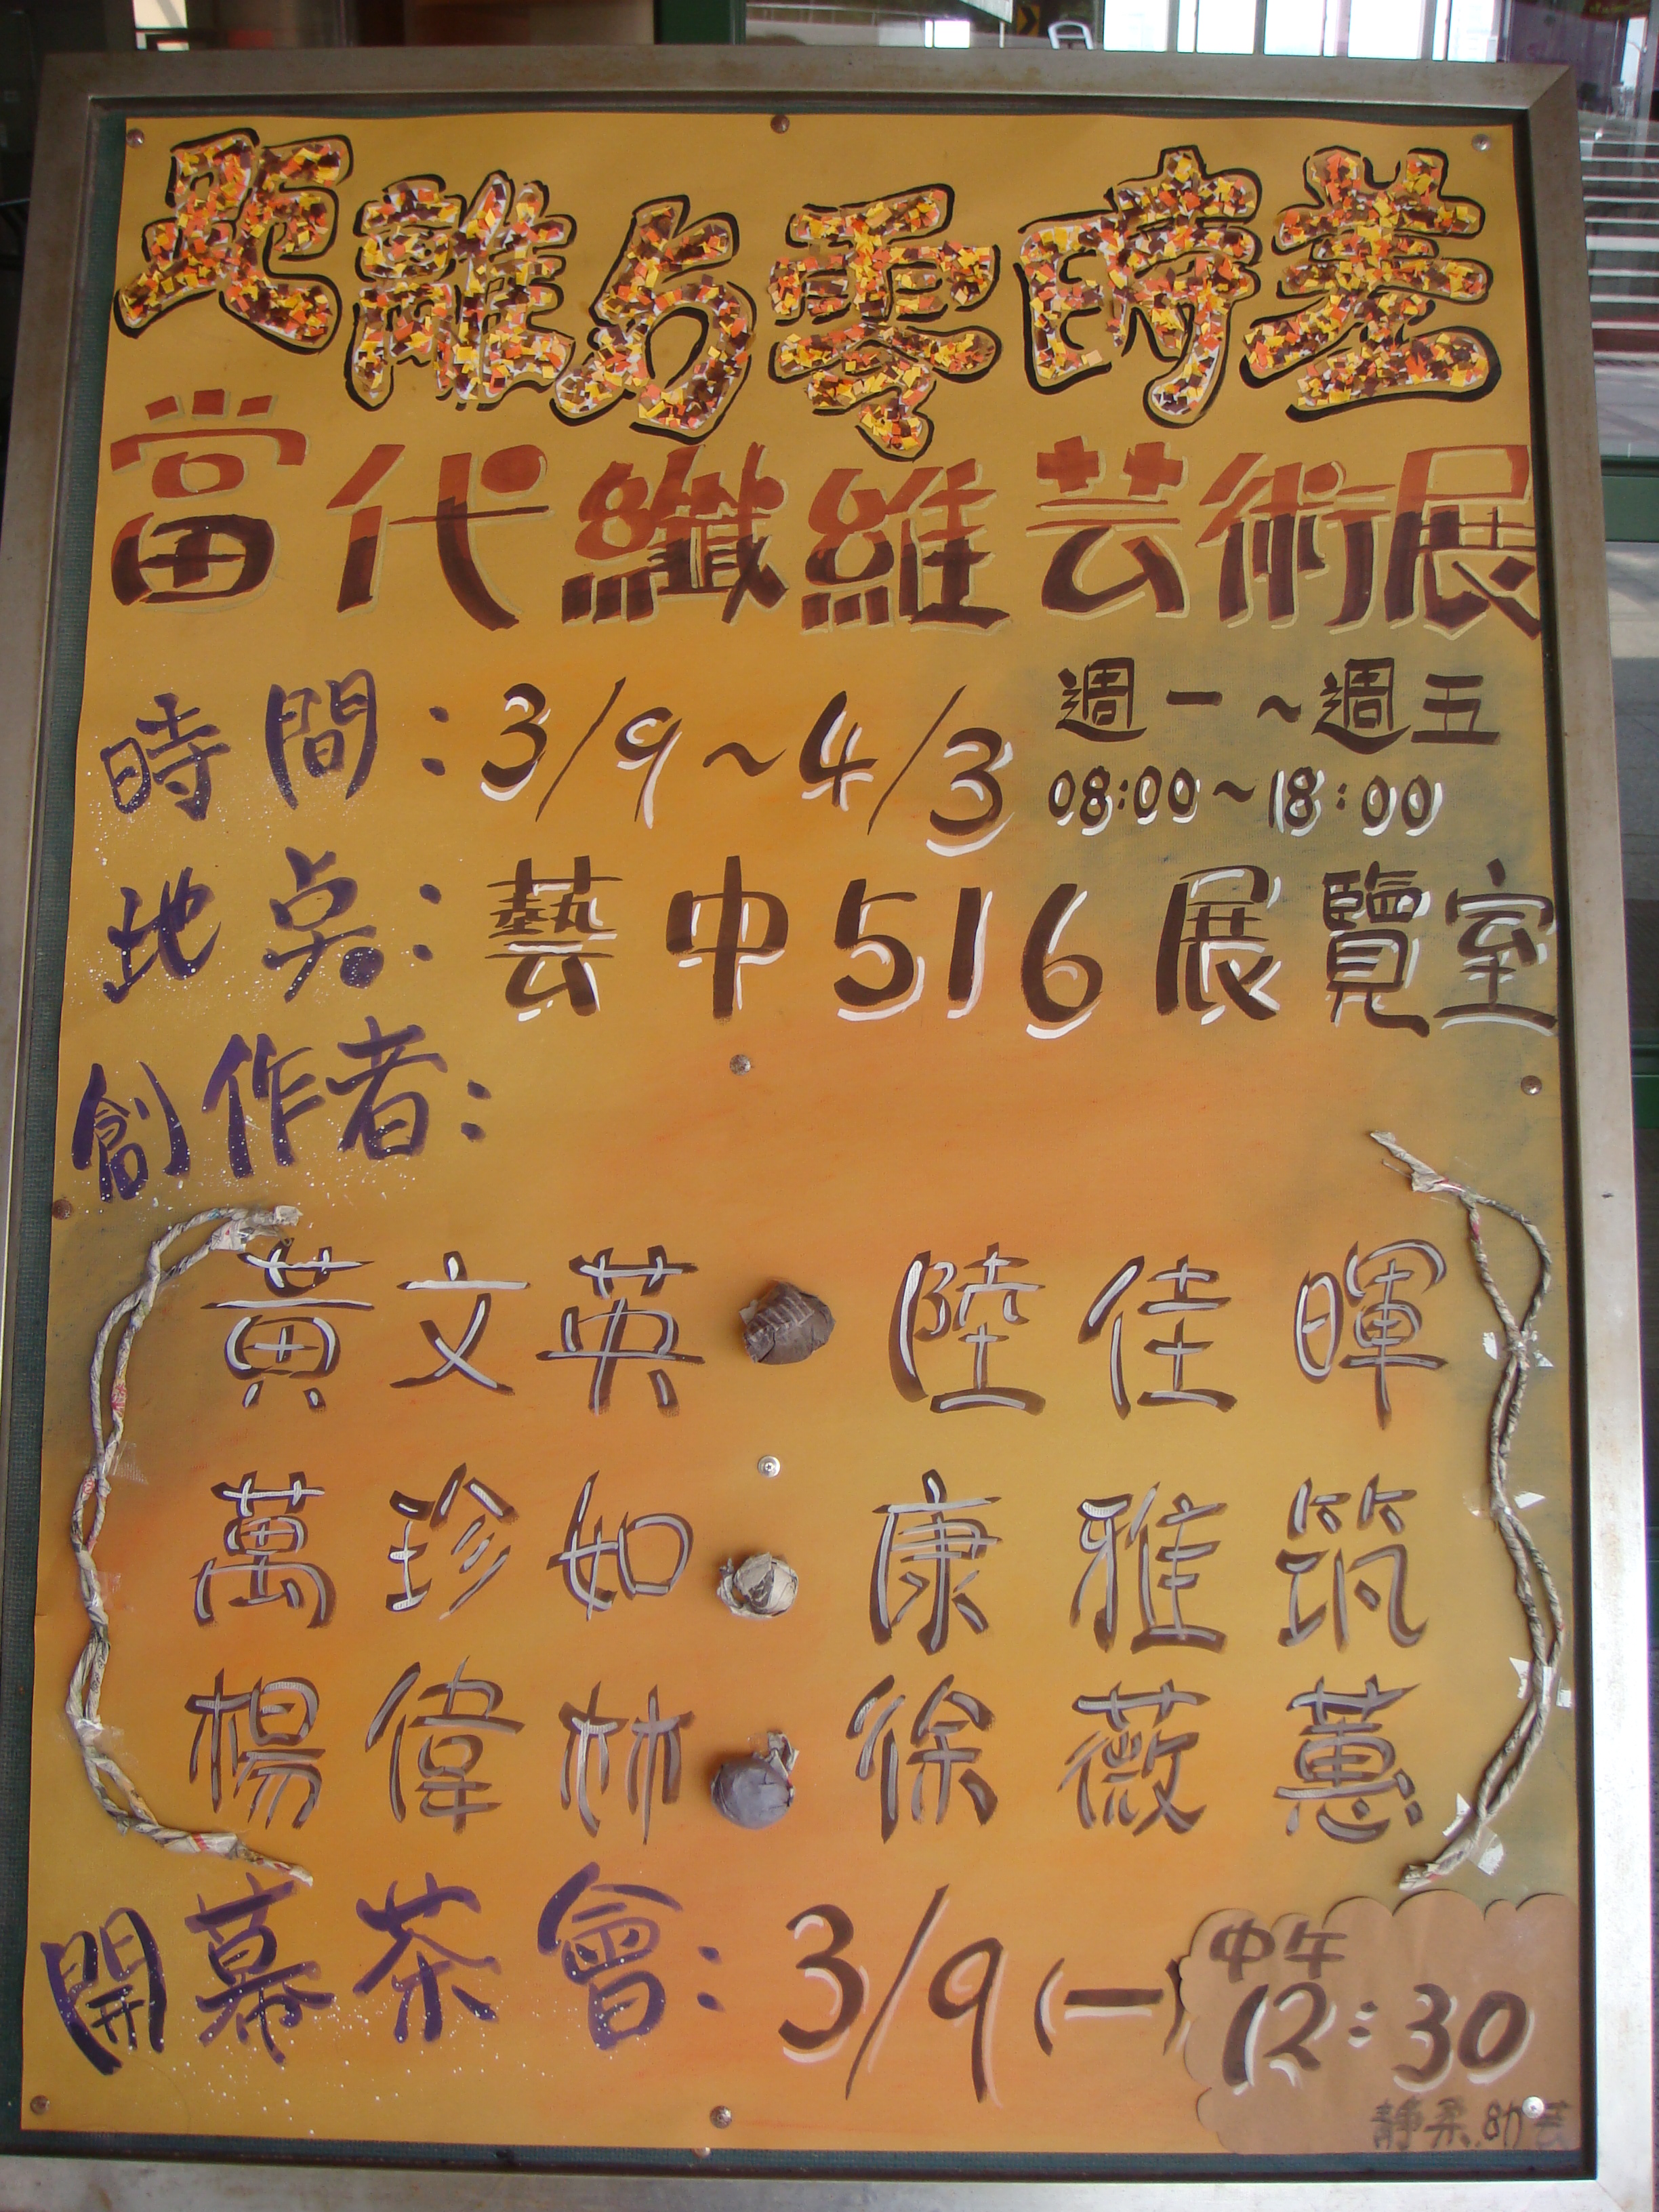 距離与零時差
當代纖維芸術展
時間:3/9~4/3 週一~週五
08:00~18:00
地点:藝中516展覽室
創作者:
黃文英 陸佳暉
萬珍如 康雅筑
楊偉林 徐薇蕙
開幕茶會:3/9(一) 中午
12:30
靜柔.幼芸